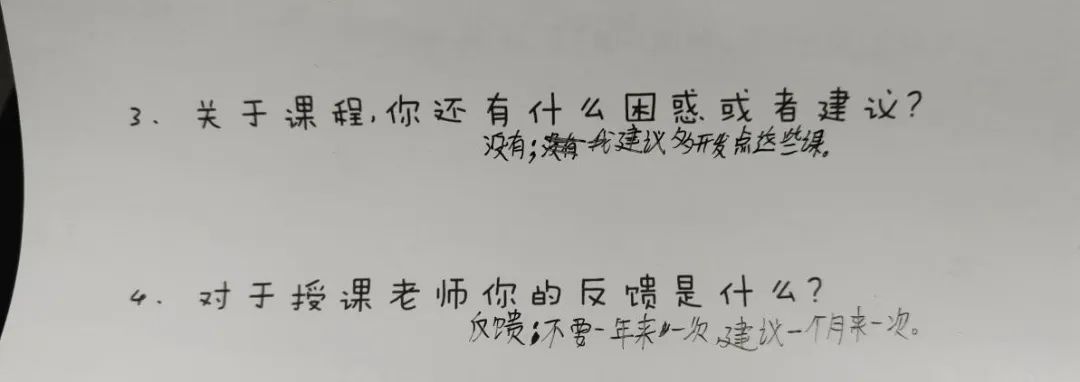 3. 关于课程,你还有什么困惑或者建议?
没有;我建议多开发点这些课。
4. 对于授课老师你的反馈是什么?
反馈:不要一年来一次,建议一个月来一次。